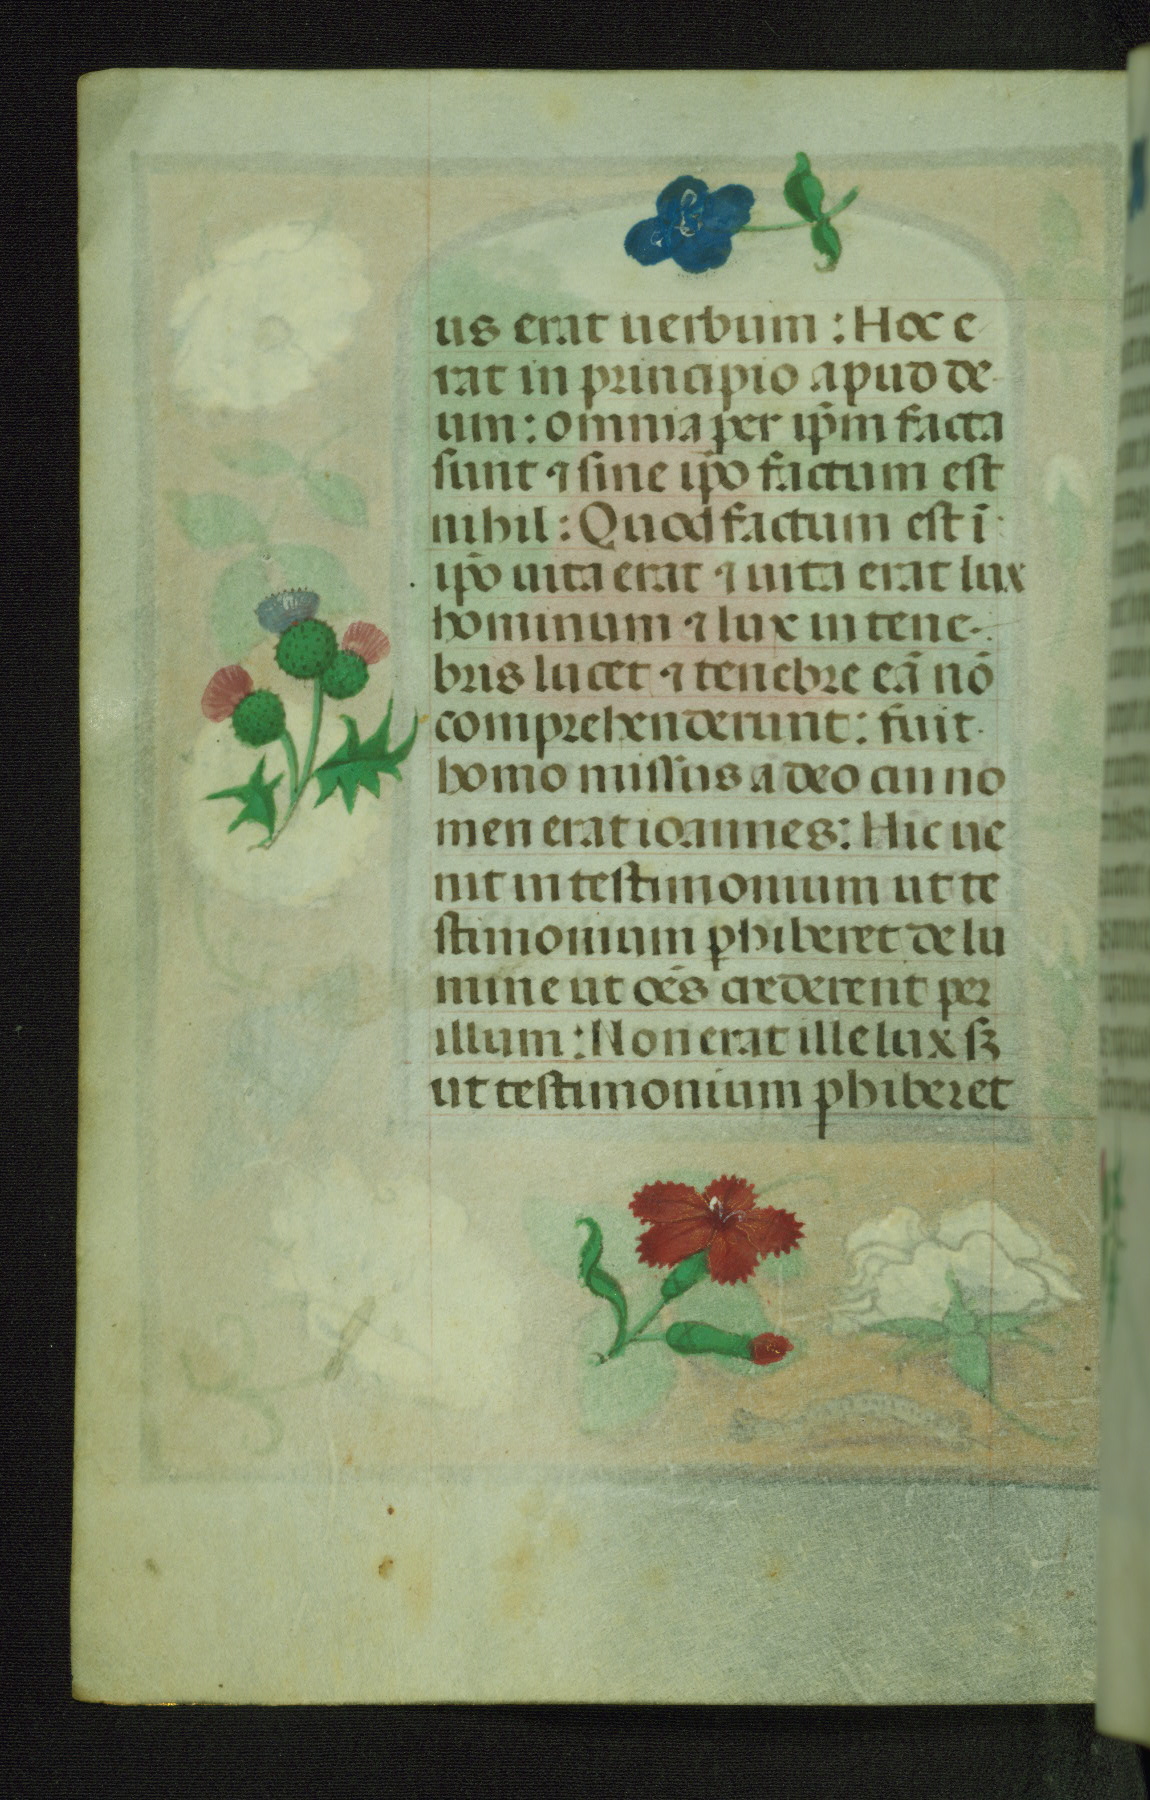 us erat uerbum : Hoc e
rat in principio apud de-
um : omnia per ip̄m facta
sunt ⁊ sine ip̄o factum est
nihil : Quod factum est ī
ip̄o uita erat ⁊ uita erat lux
hominum ⁊ lux in tene-
bris lucet ⁊ tenebre eā nō
comprehenderunt : fuit
homo missus a deo cui no
men erat ioannes : Hic ue
nit in testimonium ut te
stimonium ꝑhiberet de lu
mine ut oēs crederent per
illum : Non erat ille lux sꝫ
ut testimonium ꝑhiberet